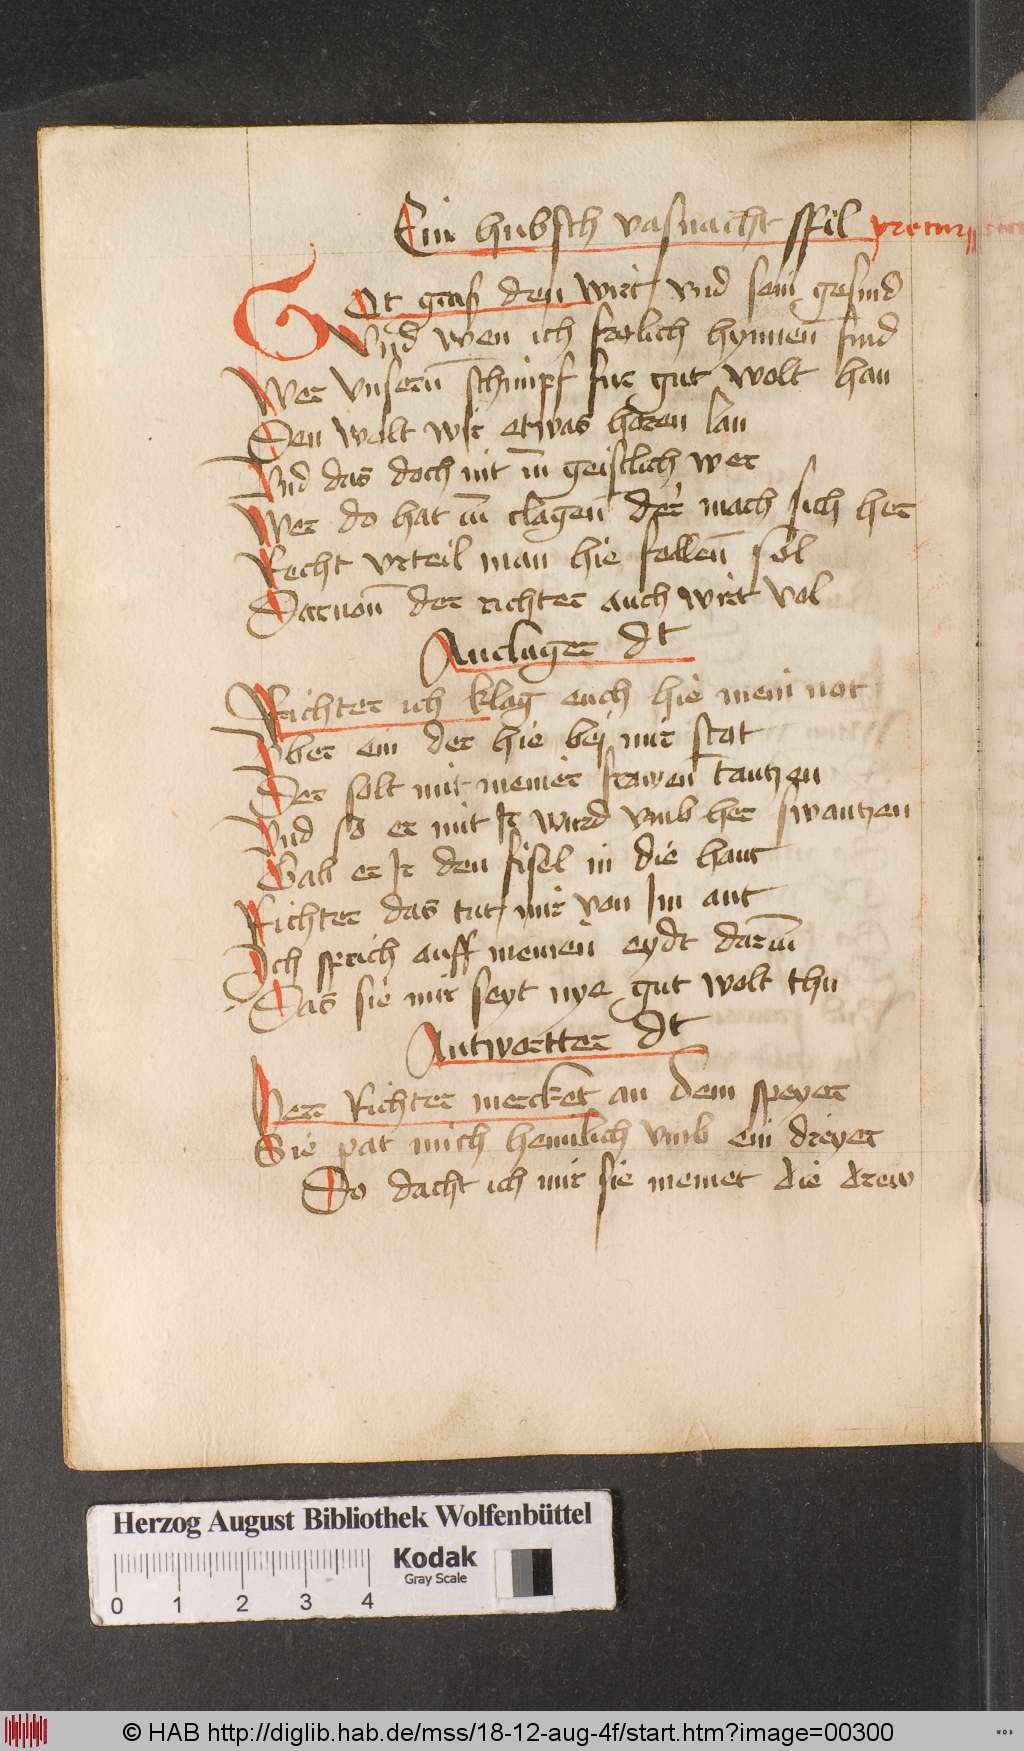 Ein hubsch vasnacht spil
Got gruß den wirt vnd sein gesind
Vnd wen ich frolich hynnen find
Wer vnsern̄ schimpf fur gut wolt han
Den wolt wir etwas horen lan
Vnd das doch nit zu geistlich wer
Wer do hat zu clagen der mach sich her
Recht vrteil man hie fellen sol
Daruon der richter auch wirt vol
Anclager dt
Richter ich klag euch hie mein not
Vber ein der hie bej mir stat
Der solt mit meiner frawen tantzen
Vnd so er mit Ir wurd vmb her swantzen
Gab er Ir den fisel in die hant
Richter das tut mir von Im ant
Ich sprich auff meinen eydt darzu
Das sie mir seyt nye gut wolt thu
Antwortter dt
Herr Richter mercket an dem speyer
Sie pat mich heimlich vmb ein dreyer
Do dacht ich mir sie meinet die drew
Herzog August Bibliothek Wolfenbüttel
Kodak
Gray Scale
0 1 2 3 4
© HAB http://diglib.hab.de/mss/18-12-aug-4f/start.htm?image=00300